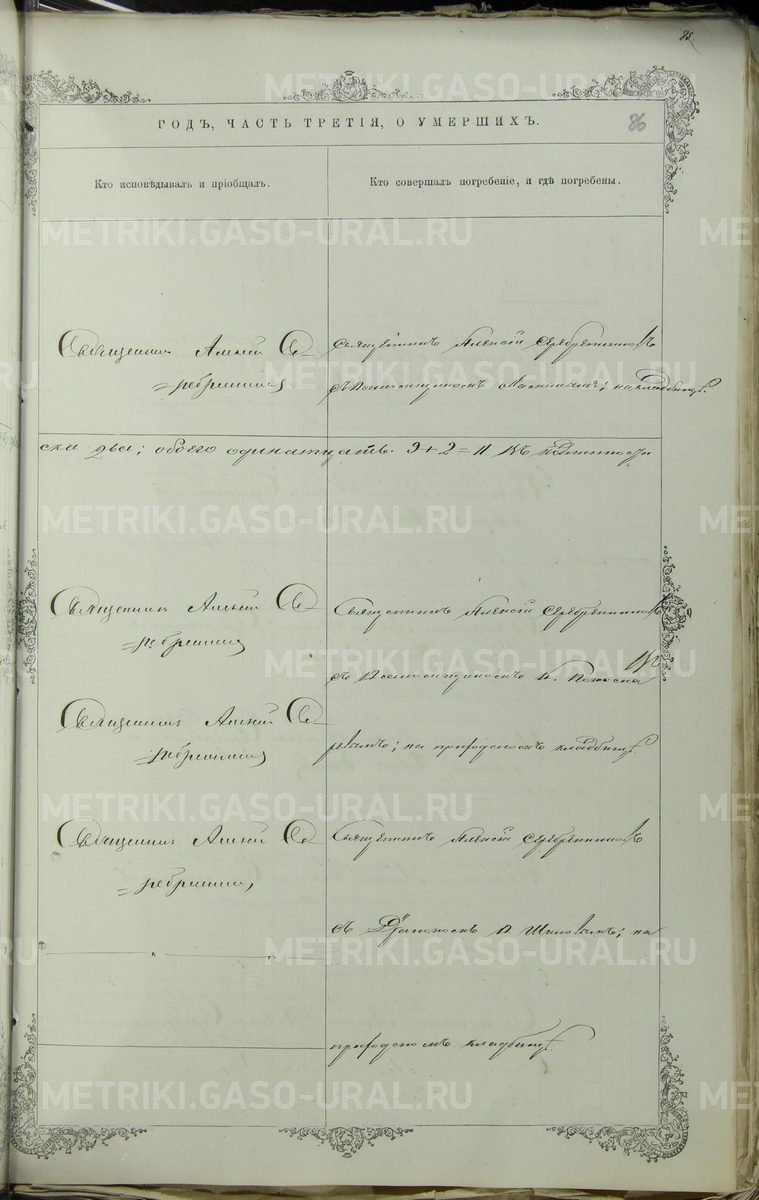 85.
86
ГОДЪ, ЧАСТЬ ТРЕТІЯ, О УМЕРШИХЪ.
Кто исповѣдывалъ и пріобщалъ.
Кто совершалъ погребеніе, и гдѣ погребены.
METRIKI.GASO-URAL.RU
Священникъ Алексій Се=
=ребренников
Священникъ Алексій Серебренниковъ
съ Псаломщикомъ; на кладбищѣ.
ска два; обоего одинатцать. 9+2=11 Въ
Священникъ Алексій Се=
=ребренников
Священникъ Алексій Серебренниковъ
съ Псаломщикомъ
на приходскомъ кладбищѣ.
Священникъ Алексій Се=
=ребренников
Священникъ Алексій Се=
=ребренников
Священникъ Алексій Серебренниковъ
съ Дьякономъ; на
приходскомъ кладбищѣ.